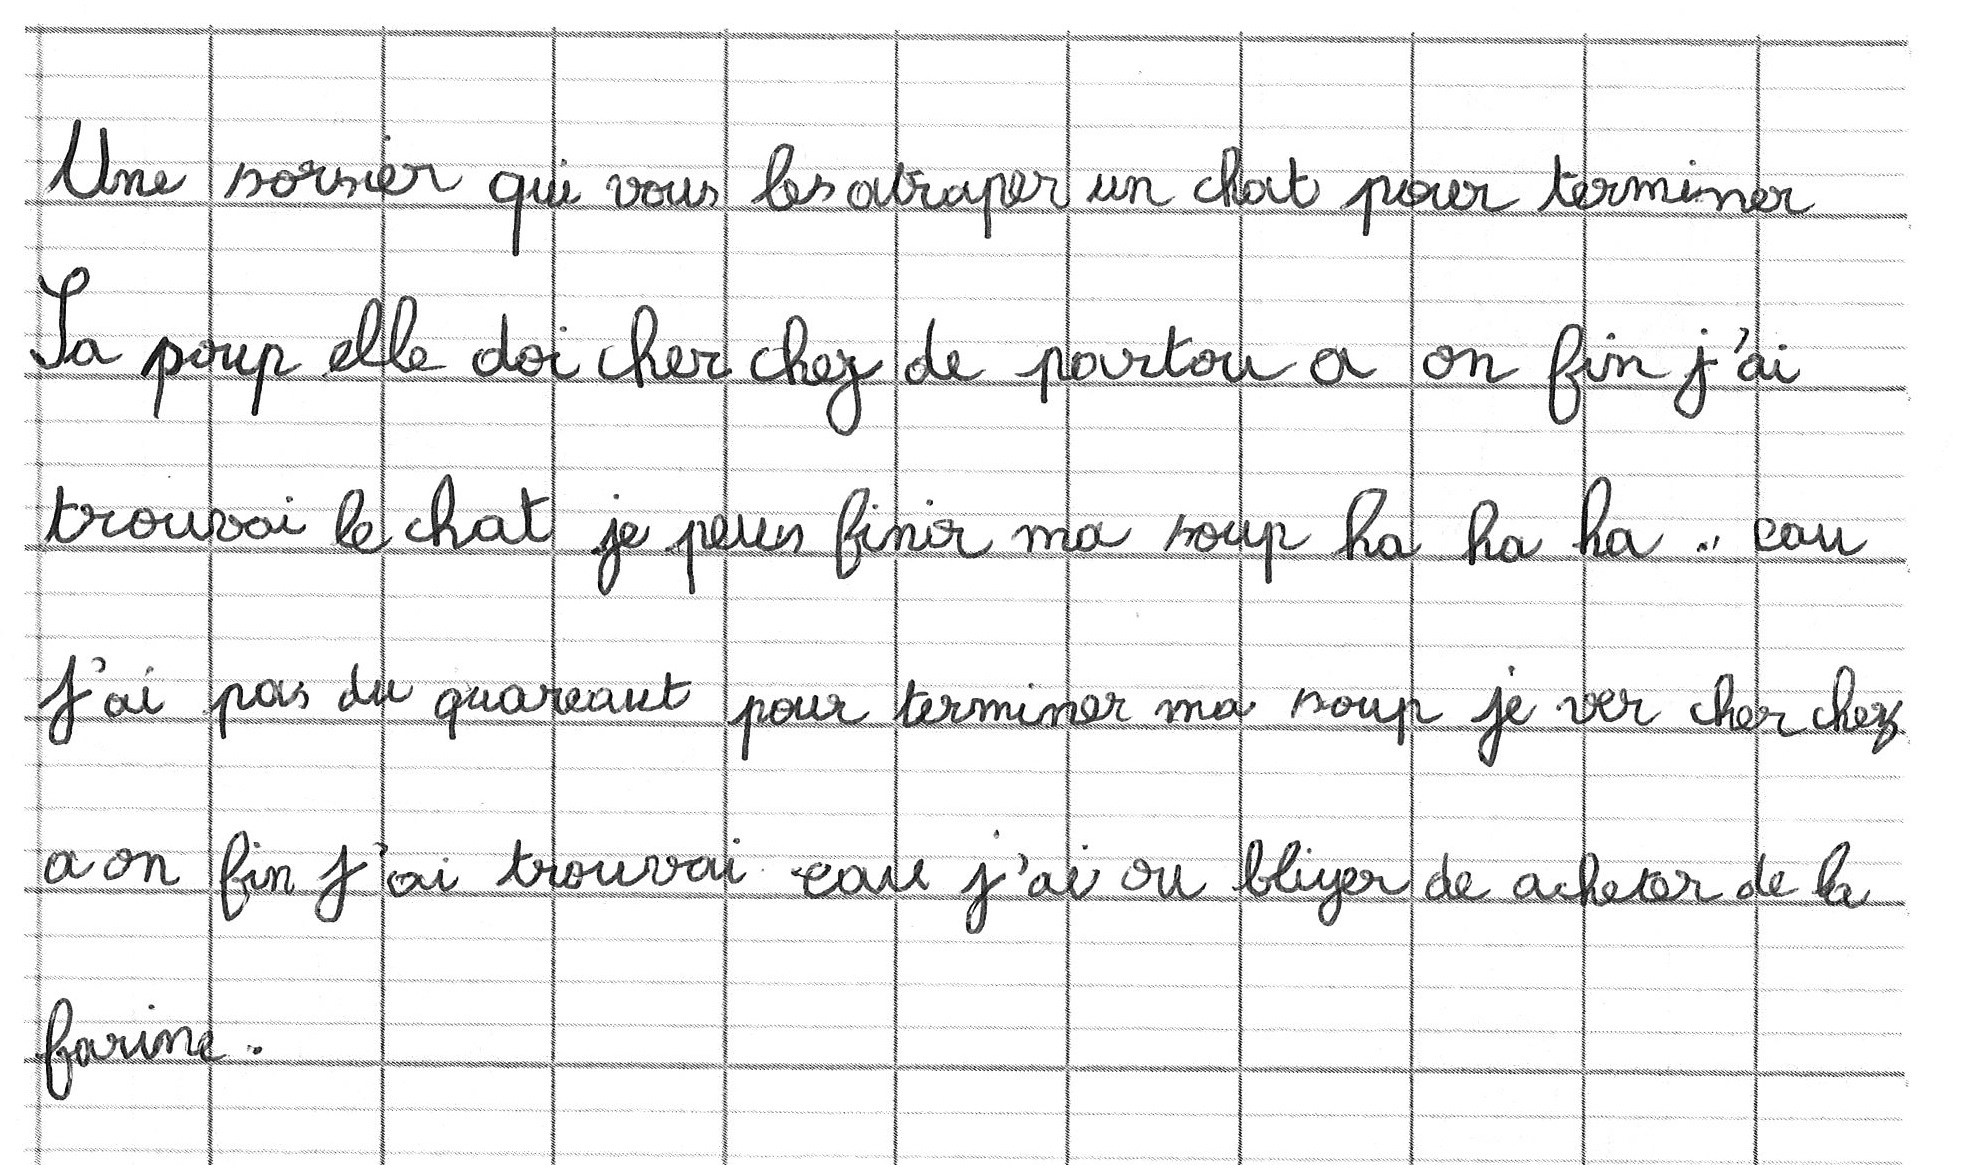 Une sorsier qui vous les atraper un chat pour terminer
Sa poup elle doi cher chez de partou a on fin j'ai
trouvai le chat je peus finir ma soup ha ha ha .. eau
j'ai pas du quareaut pour terminer ma soup je ver cher chez
a on fin j'ai trouvai eau j'ai ou bliyer de acheter de la
farine.